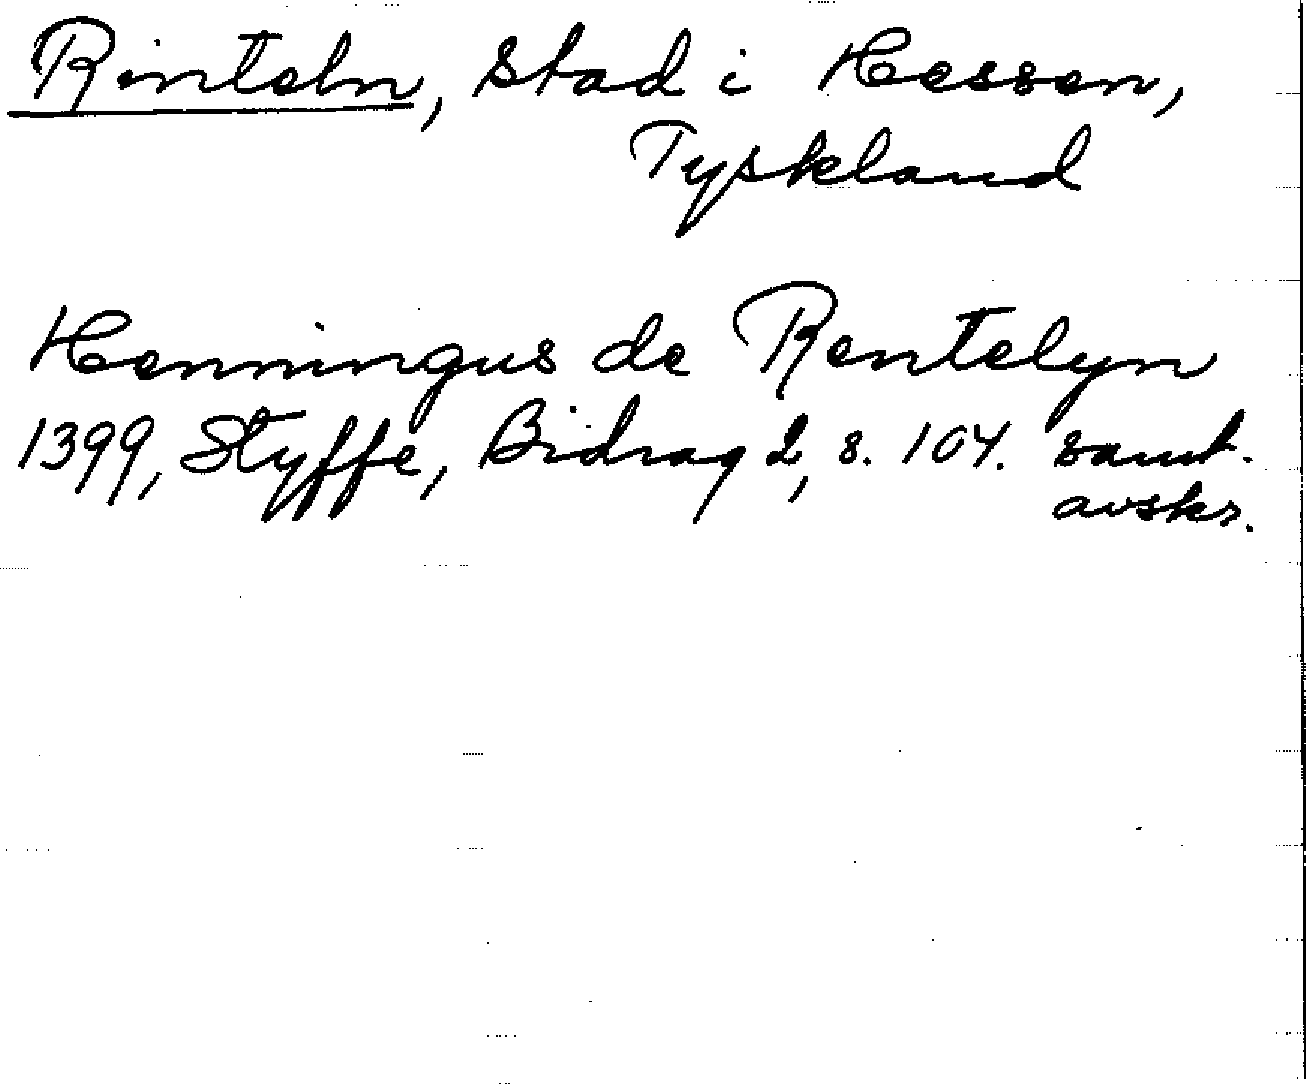 Rinteln, stad i Hessen,
Tyskland
Henningus de Rentelyn
1399, Styffe, Bidrag 2, s. 104. samt.
avskr.